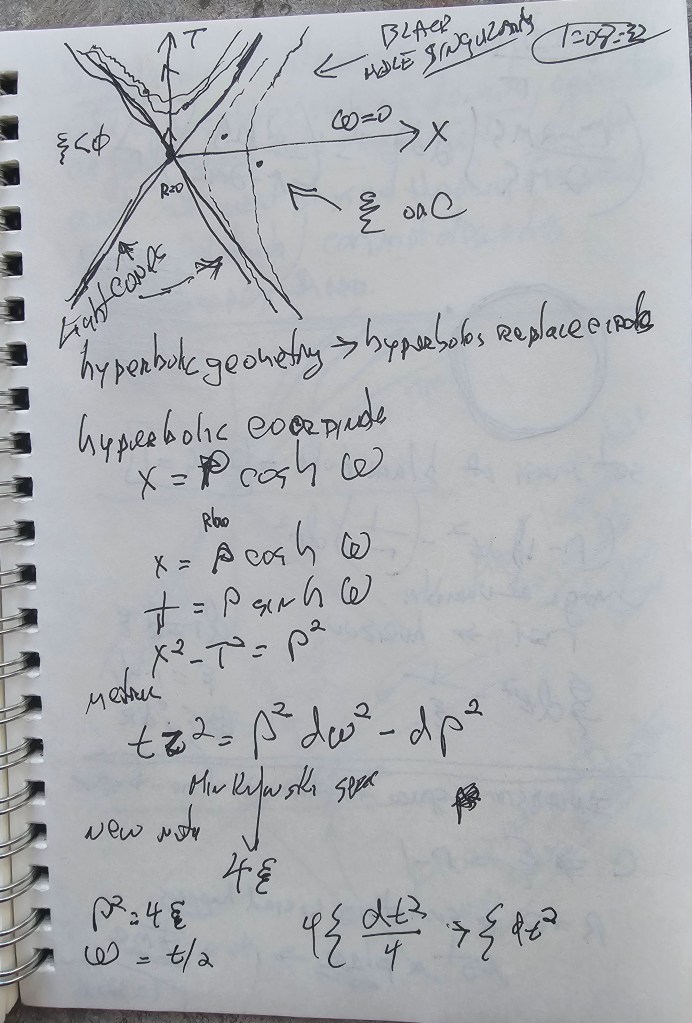 T
BLACK
HOLE SINGULARITY
ω=0
X
ξ<φ
R=0
Light cones
hyperbolic geometry → hyperbolas replace circles
hyperbolic coordinate
X = ρ cosh ω
Rho
x = ρ cosh ω
T = ρ sinh ω
X² - T² = ρ²
Metric
= ρ² dω² - dρ²
Minkowski space
New
4ξ
ρ² = 4ξ
4ξ dt²/4 → ξ dt²
ω = t/2